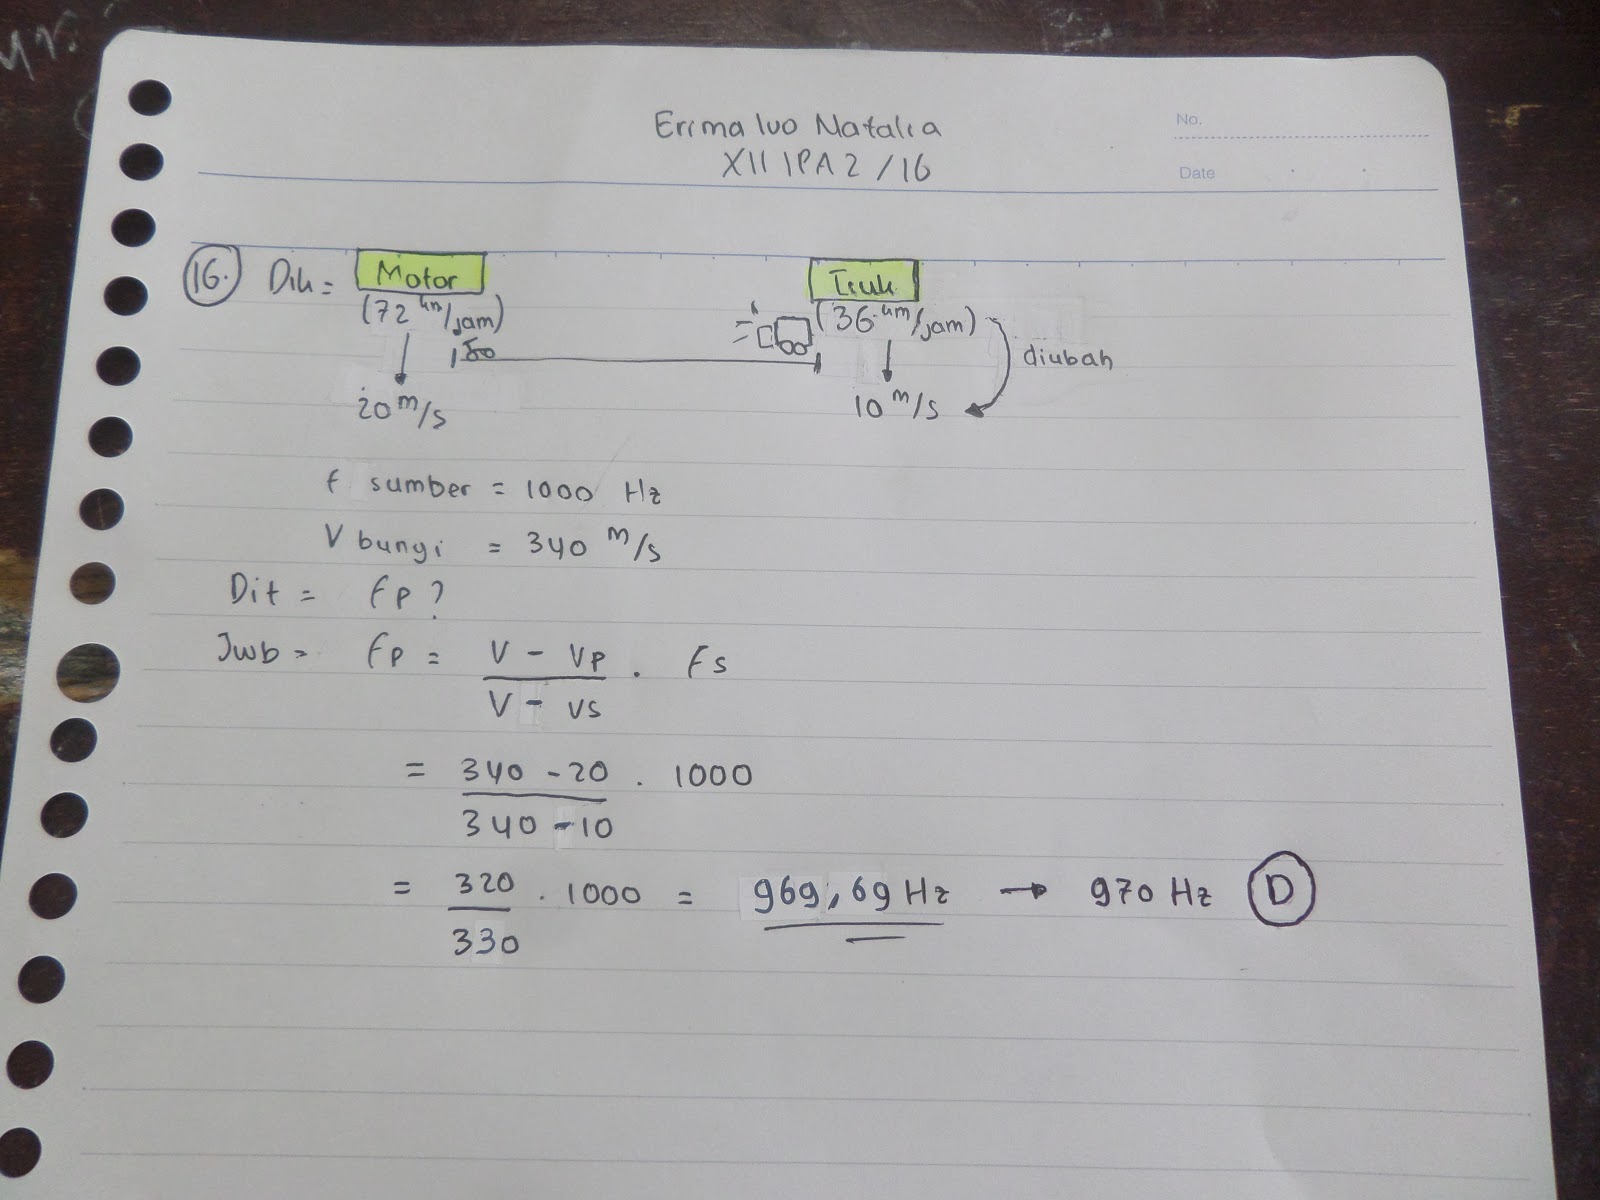 Erima Ivo Natalia
XII IPA 2 / 16
No.
Date
16. Dik = Motor
Truk
(72 km/jam)
(36 km/jam)
diubah
150
20 m/s
10 m/s
f sumber = 1000 Hz
V bungi = 340 m/s
Dit = fp ?
Jwb = fp = V - Vp . fs
V - Vs
= 340 - 20 . 1000
340 - 10
= 320 . 1000 = 969,69 Hz → 970 Hz D
330